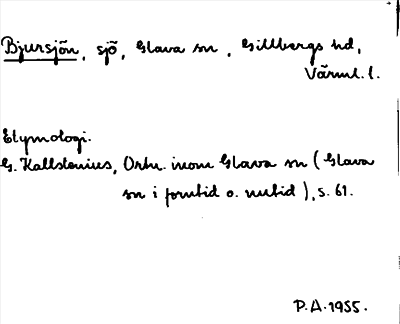 Bjursjön, sjö, Glava sn, Gillbergs hd,
Värml. l.
Etymologi.
G. Kallstenius, Ortn. inom Glava sn (Glava
sn i forntid o. nutid), s. 61.
P.A. 1955.